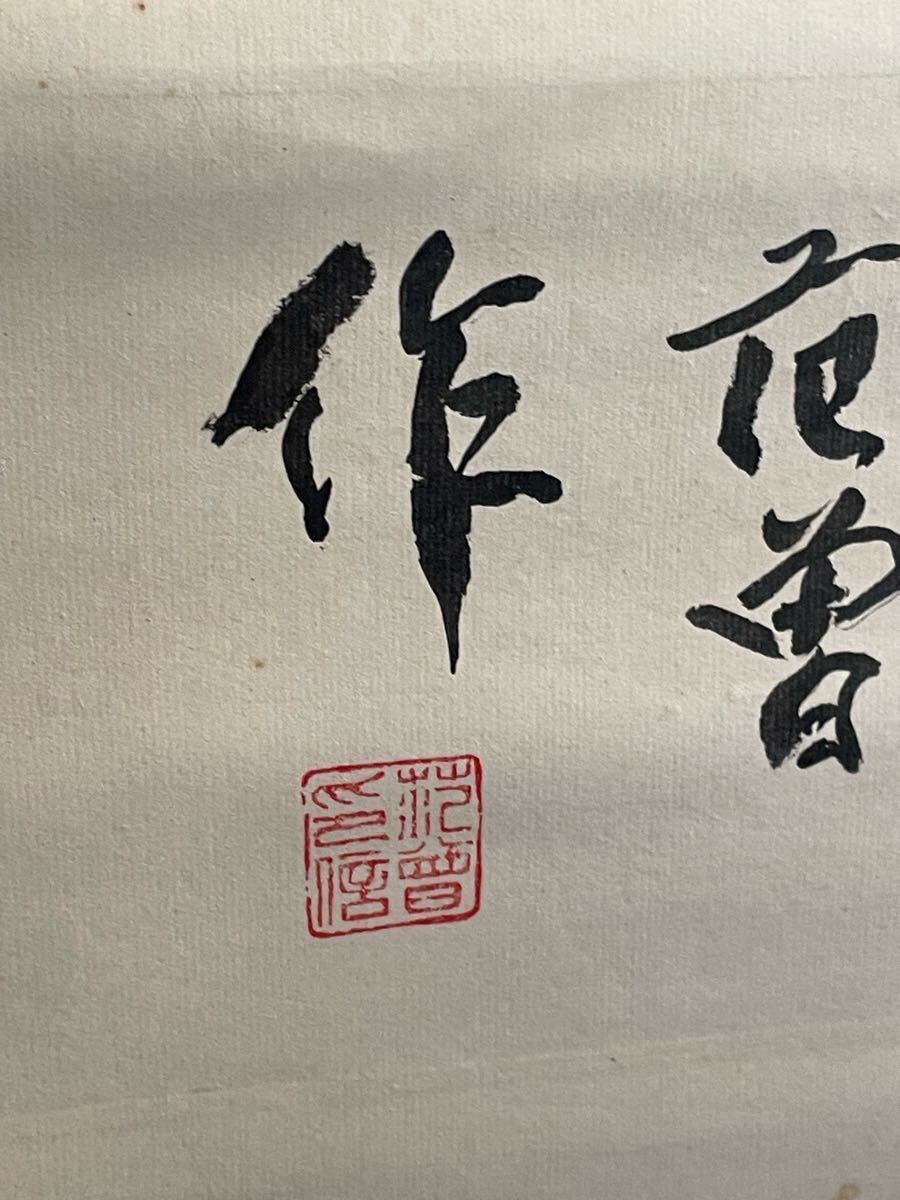 范曾
作
范曾之印信